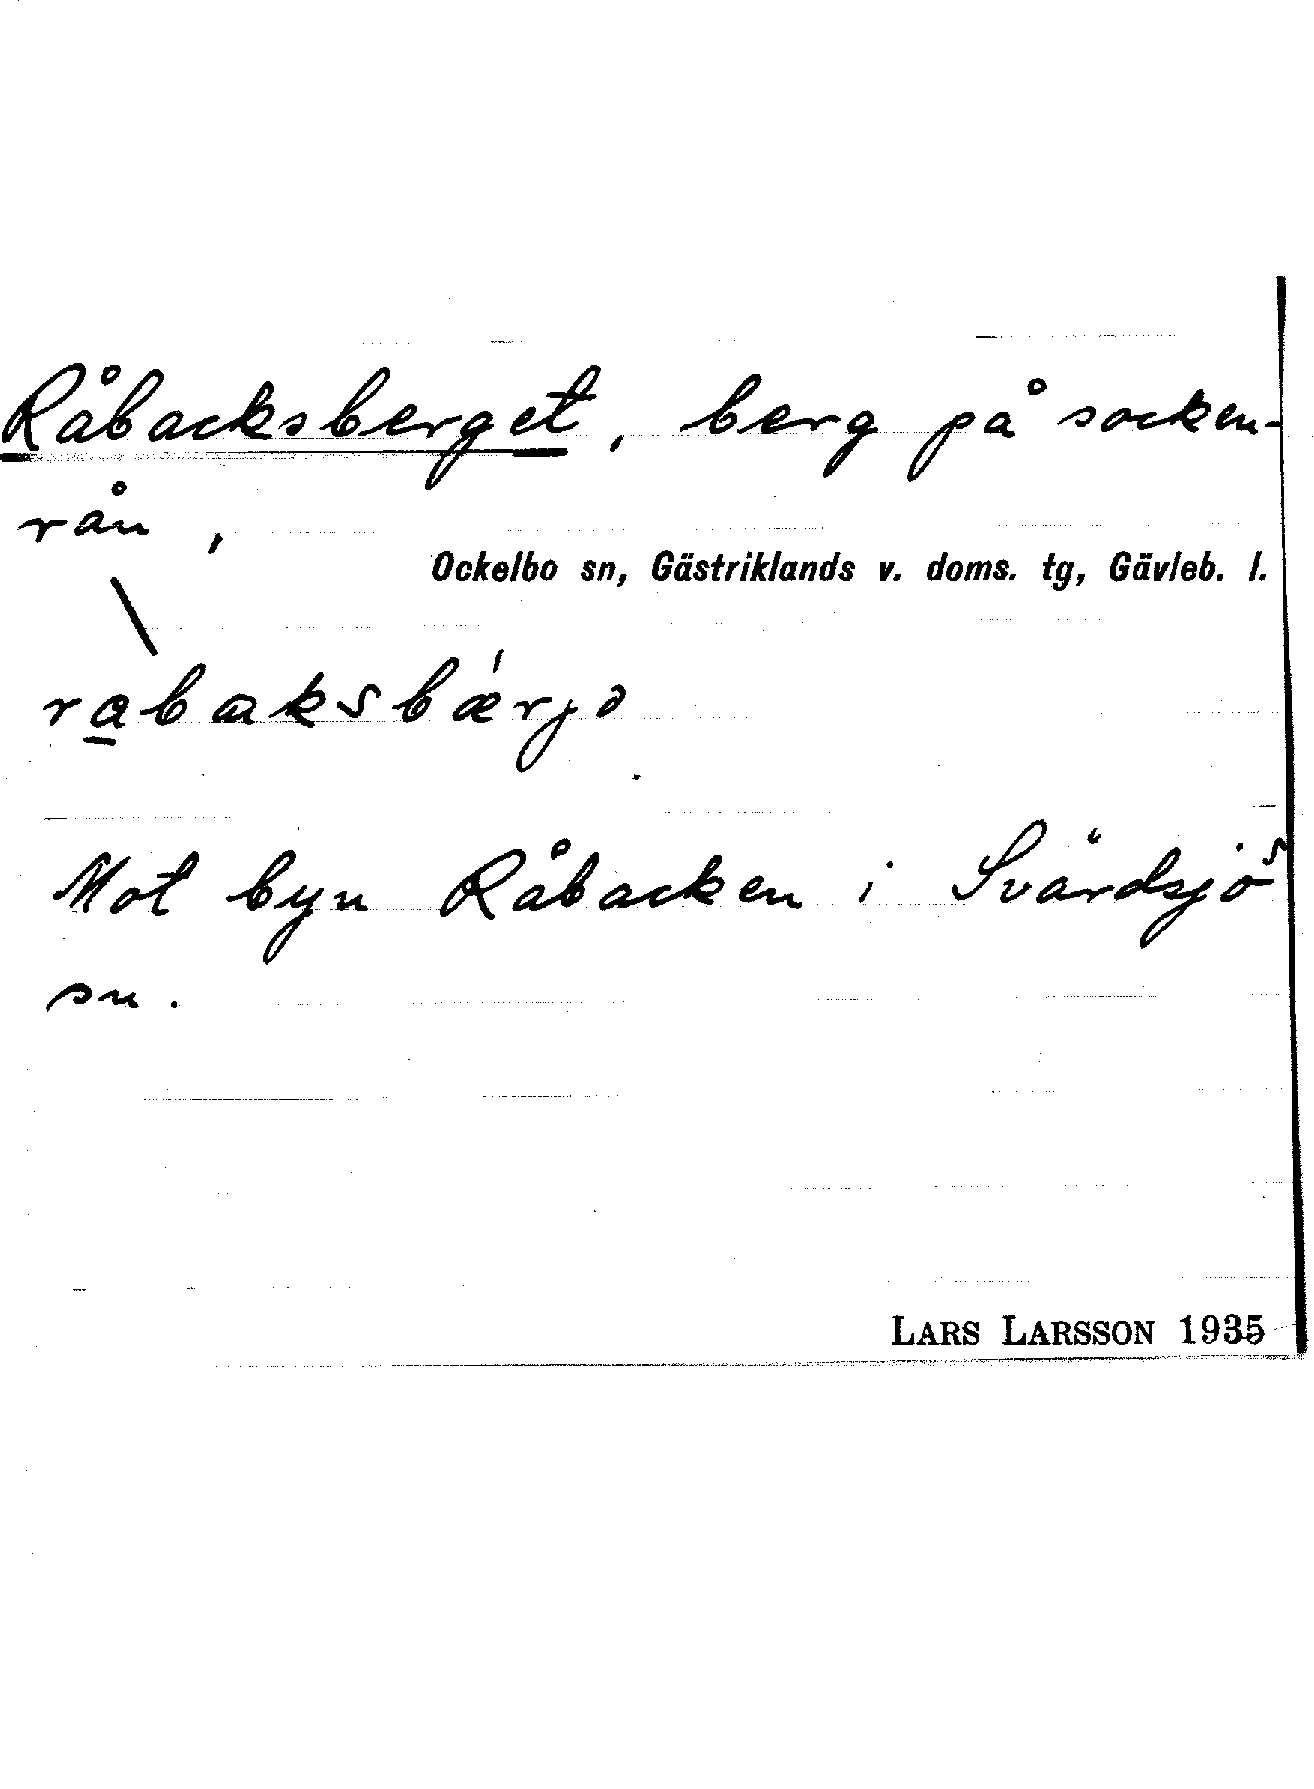 Råbacksberget, berg på socken-
rån,
Ockelbo sn, Gästriklands v. doms. tg, Gävleb. l.
rabaksbærjə
Mot byn Råbacken i Svärdsjö
sn.
LARS LARSSON 1935